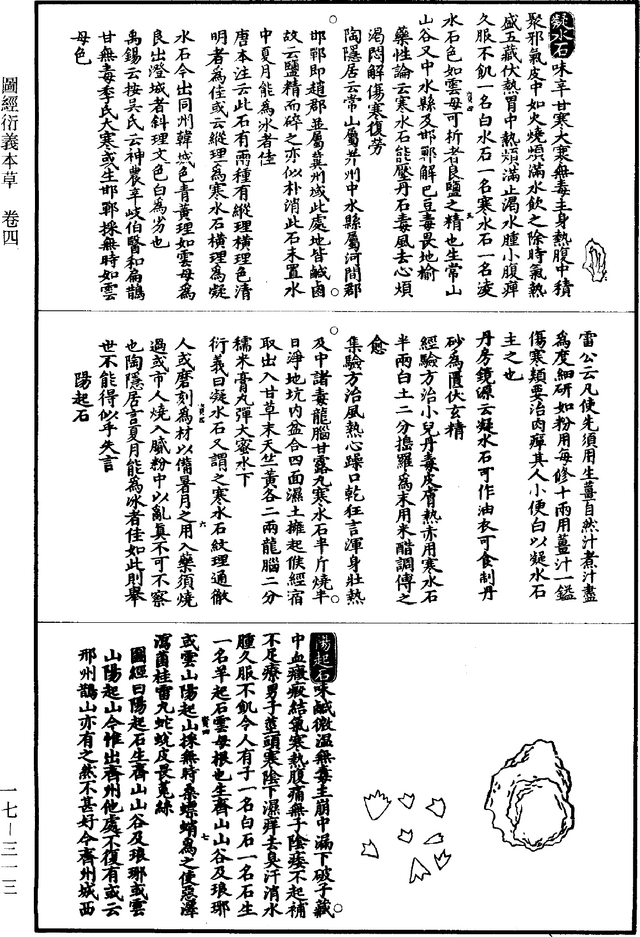 圖經衍義本草 卷四
一七—三一三
凝水石味辛甘寒大寒無毒主身熱腹中積
聚邪氣皮中如火燒煩滿水飲之除時氣熱
盛五藏伏熱胃中熱煩滿止渴水腫小腹痺
久服不飢一名白水石一名寒水石一名凌
水石色如雲母可析者良鹽之精也生常山
山谷又中水縣及邯鄲解巴豆毒畏地榆
藥性論云寒水石能壓丹石毒風去心煩
渴悶解傷寒復勞
陶隱居云常山屬并州中水縣屬河間郡
邯鄲即趙郡並屬冀州域此處地皆鹹鹵
故云鹽精而碎之亦似朴消此石末置水
中夏月能為冰者佳
唐本注云此石有兩種有縱理橫理色清
明者為佳或云縱理為寒水石橫理為凝
水石今出同州韓城色青黃理如雲母為
良出澄城者斜理文色白為劣也
禹錫云按吳氏云神農辛岐伯醫和扁鵲
甘無毒李氏大寒或生邯鄲採無時如雲
母色
雷公云凡使先須用生薑自然汁煮汁盡
為度細研如粉用每修十兩用薑汁一鎰
傷寒類要治肉癉其人小便白以凝水石
主之也
丹房鏡源云凝水石可作油衣可食制丹
砂為匱伏玄精
經驗方治小兒丹毒皮膚熱赤用寒水石
半兩白土二分搗羅為末用米醋調傅之
愈
集驗方治風熱心躁口乾狂言渾身壯熱
及中諸毒龍腦甘露丸寒水石半斤燒半
日淨地坑內盆合四面濕土擁起候經宿
取出入甘草末天竺黃各二兩龍腦二分
糯米膏丸彈大蜜水下
衍義曰凝水石又謂之寒水石紋理通徹
人或磨刻為材以備暑月之用入藥須燒
過或市人燒入膩粉中以亂真不可不察
也陶隱居言夏月能為冰者佳如此則舉
世不能得似乎失言
陽起石
陽起石味鹹微溫無毒主崩中漏下破子藏
中血癥瘕結氣寒熱腹痛無子陰痿不起補
不足療男子莖頭寒陰下濕痒去臭汗消水
腫久服不飢令人有子一名白石一名石生
一名羊起石雲母根也生齊山山谷及琅琊
或雲山陽起山採無時桑螵蛸為之使惡澤
瀉菌桂雷丸蛇蛻皮畏菟絲
圖經曰陽起石生齊山山谷及琅琊或雲
山陽起山今惟出齊州他處不復有或云
邢州鵲山亦有之然不甚好今齊州城西